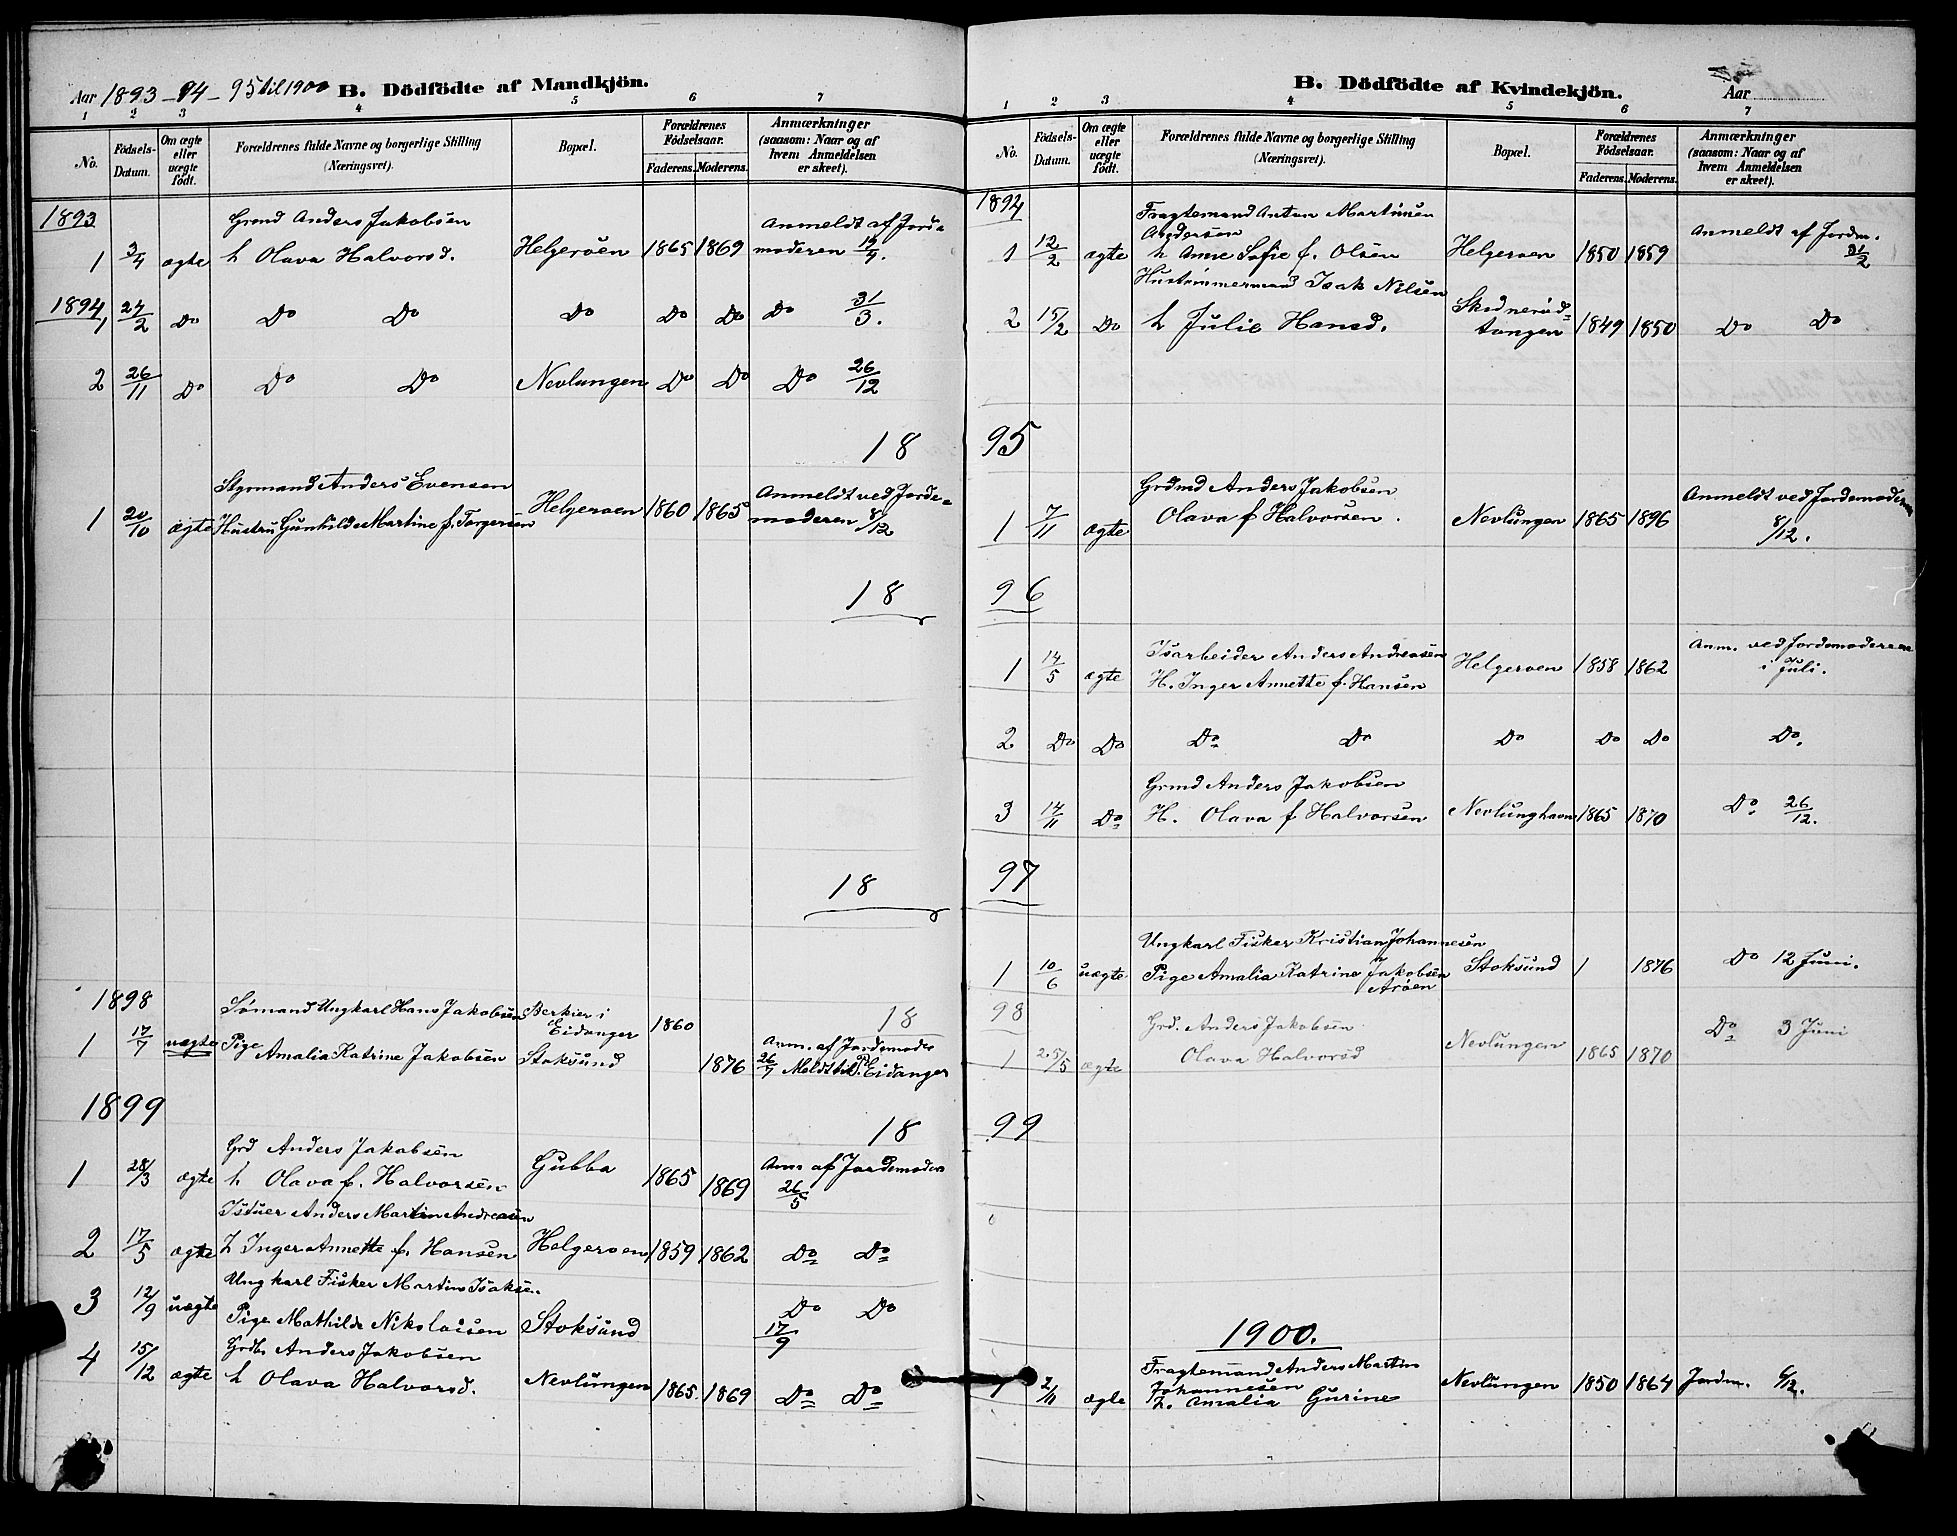 Aar 1893-94-95 til 1900 B. Dödfödte af Mandkjön.
1 2 3 4 5 6 7
No. Födsels-Datum. Om ægte eller uægte födt. Forældrenes fulde Navne og borgerlige Stilling (Næringsvei). Bopæl. Forældrenes Födselsaar. Faderens. Moderens. Anmærkninger (saasom: Naar og af hvem Anmeldelsen er skeet).
1893
Grmd Anders Jakobsen Anmeldt af Jorde-
1 3/4 ægte h Olava Halvorsd. Helgeroen 1865 1869 moderen
1894
1 24/2 Do Do Do Do Do Do Do 31/3.
2 26/11 Do Do Do Nevlungen Do Do Do 26/12
18
Styrmand Anders Evensen Anmeldt ved Jorde-
1 20/10 ægte Hustru Gunhilde Martine f. Torgersen Helgeroen 1860 1865 moderen 8/12
18
18
1898
Sømand Ungkarl Hans Jakobsen Berkier i Eidanger 1860 18
1 17/7 uægte Pige Amalia Katrine Jakobsen Stoksund 1876 Anm. af Jordemoder
26/7 Meldt til Eidanger
1899
18
Grd Anders Jakobsen
1 28/3 ægte h Olava f. Halvorsen Gubba 1865 1869 Anm af Jordemoder 26/5
Anders Martin Andreasen
2 17/5 ægte h Inger Annette f. Hansen Helgeroen 1859 1862 Do Do
Ungkarl Fisker Martin Isaksen
3 12/9 uægte Pige Mathilde Nikolaisen Stoksund Do Do 17/9
Anders Jakobsen
4 15/12 ægte h Olava Halvorsd. Nevlungen 1865. 1869 Do Do
B. Dödfödte af Kvindekjön. Aar
1 2 3 4 5 6 7
No. Födsels-Datum. Om ægte eller uægte födt. Forældrenes fulde Navne og borgerlige Stilling (Næringsvei). Bopæl. Forældrenes Födselsaar. Faderens. Moderens. Anmærkninger (saasom: Naar og af hvem Anmeldelsen er skeet).
1894
Fragtemand Anton Martinsen
Andersen Anmeldt af Jordm.
1 12/2 ægte h Anne Sofie f. Olsen Helgeroen 1850 1859
Hustømmermand Isak Nilsen
2 15/2 Do h Julie Hansd. tangen 1849 1850 Do Do
95
Grdmd Anders Jakobsen Anmeldt ved Jordemoderen
1 7/11 ægte Olava f Halvorsen. Nevlungen 1865 1896 8/12.
96
Isarbeider Anders Andreasen Anm. ved Jordemoderen
1 14/5 ægte H. Inger Annette f. Hansen Helgeroen 1858 1862 i juli.
2 Do Do Do Do Do Do Do Do.
Grmd Anders Jakobsen
3 14/11 Do H. Olava f Halvorsen Nevlunghavn 1865 1870 Do 26/12.
97
Ungkarl Fisker Kristian Johannesen
1 10/6 uægte Pige Amalia Katrine Jakobsen Stoksund 1 1876 Do 12 Juni.
Arøen
98
Grd. Anders Jakobsen Do 3 Juni
1 25/5 ægte Olava Halvorsd Nevlungen 1865 1870
99
1900.
Fragtemand Anders Martin
Johannesen
1 2/11 ægte h. Amalia Gurine Nevlungen 1850 1864 Jordm. 6/12.